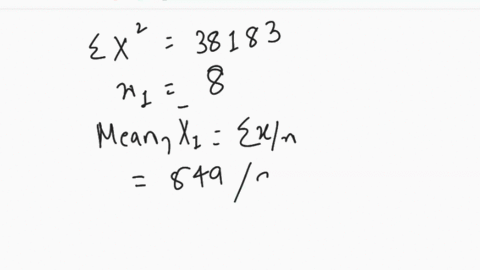 Σx² = 38183
n₁ = 8
Mean, X₁ = Σx/n
= 849 /